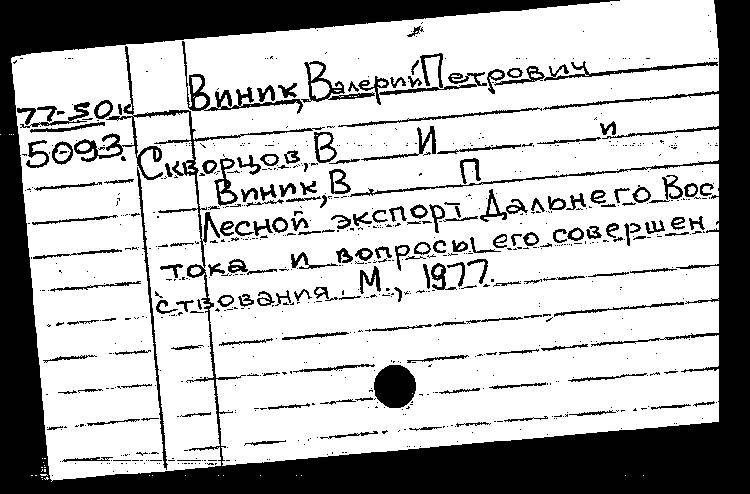 Виник, Валерий Петрович
77-50к
5093.
Скворцов, В И и
Виник, В. П
Лесной экспорт Дальнего Вос
тока и вопросы его совершен-
ствования. М., 1977.